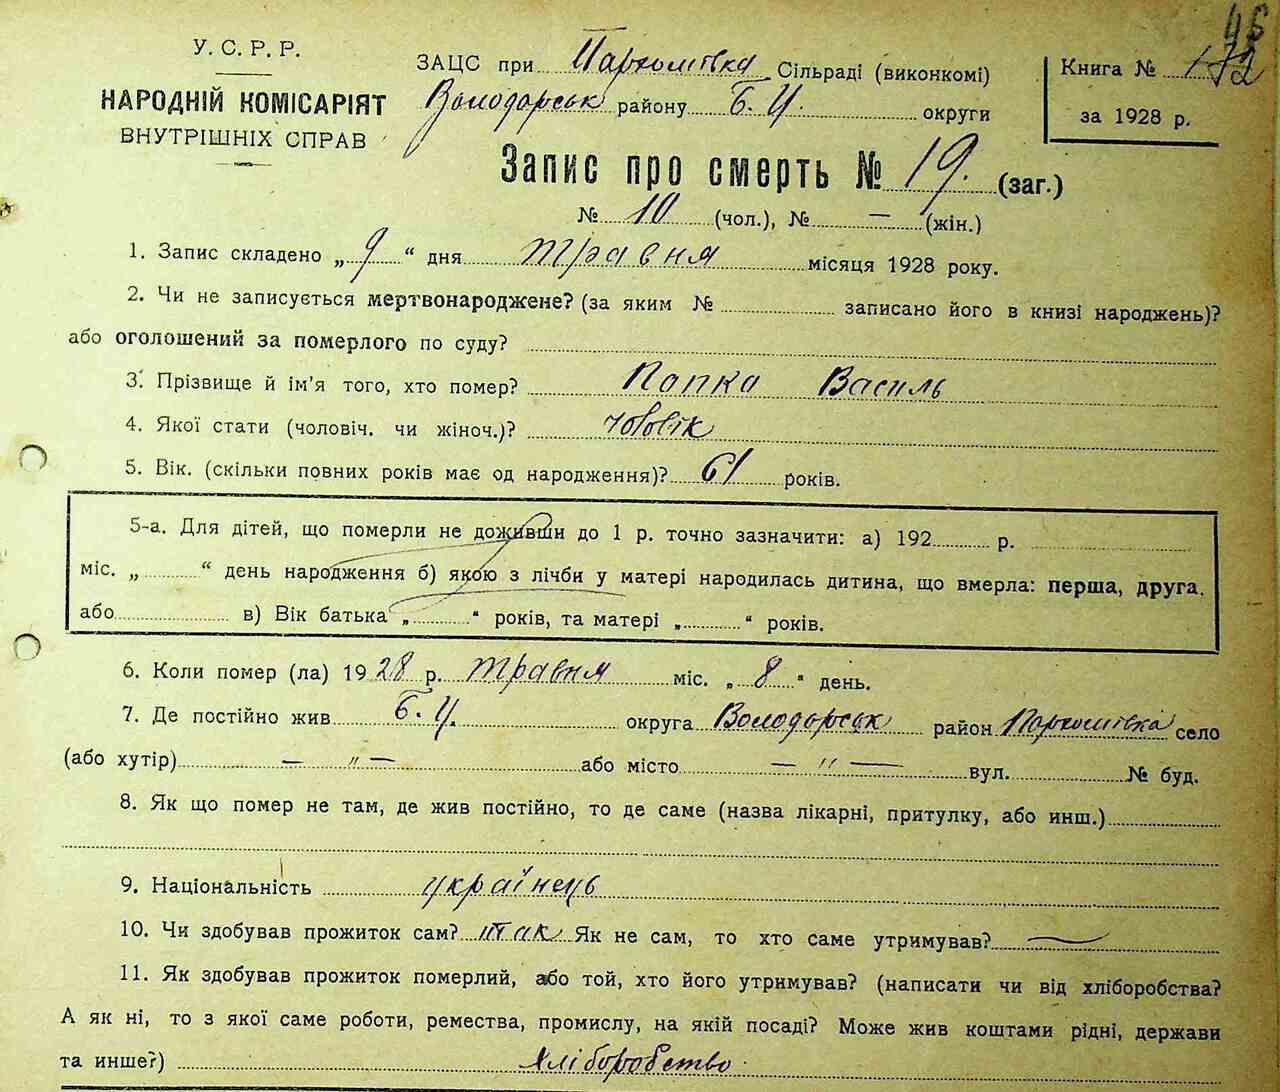 46
172
У. С. Р. Р.
НАРОДНІЙ КОМІСАРІЯТ
ВНУТРІШНІХ СПРАВ
ЗАЦС при Пархомівка Сільраді (виконкомі)
Володарськ району Б. Ц. округи
Книга №
за 1928 р.
Запис про смерть № 19. (заг.)
№ 10 (чол.), № — (жін.)
1. Запис складено „ 9 “ дня травня місяця 1928 року.
2. Чи не записується мертвонароджене? (за яким № записано його в книзі народжень)?
або оголошений за померлого по суду?
3. Прізвище й ім'я того, хто помер? Папка Василь
4. Якої стати (чоловіч. чи жіноч.)? чоловік
5. Вік. (скільки повних років має од народження)? 61 років.
5-а. Для дітей, що померли не доживши до 1 р. точно зазначити: а) 192 р.
міс. „ “ день народження б) якою з лічби у матері народилась дитина, що вмерла: перша, друга.
або в) Вік батька „ “ років, та матері „ “ років.
6. Коли помер (ла) 1928 р. травня міс. „ 8 “ день.
7. Де постійно жив Б. Ц. округа Володарськ район Пархомівка село
(або хутір) — „ — або місто — „ — вул. № буд.
8. Як що помер не там, де жив постійно, то де саме (назва лікарні, притулку, або инш.)
9. Національність українець
10. Чи здобував прожиток сам? так Як не сам, то хто саме утримував? —
11. Як здобував прожиток померлий, або той, хто його утримував? (написати чи від хліборобства?
А як ні, то з якої саме роботи, ремества, промислу, на якій посаді? Може жив коштами рідні, держави
та инше?) Хліборобство